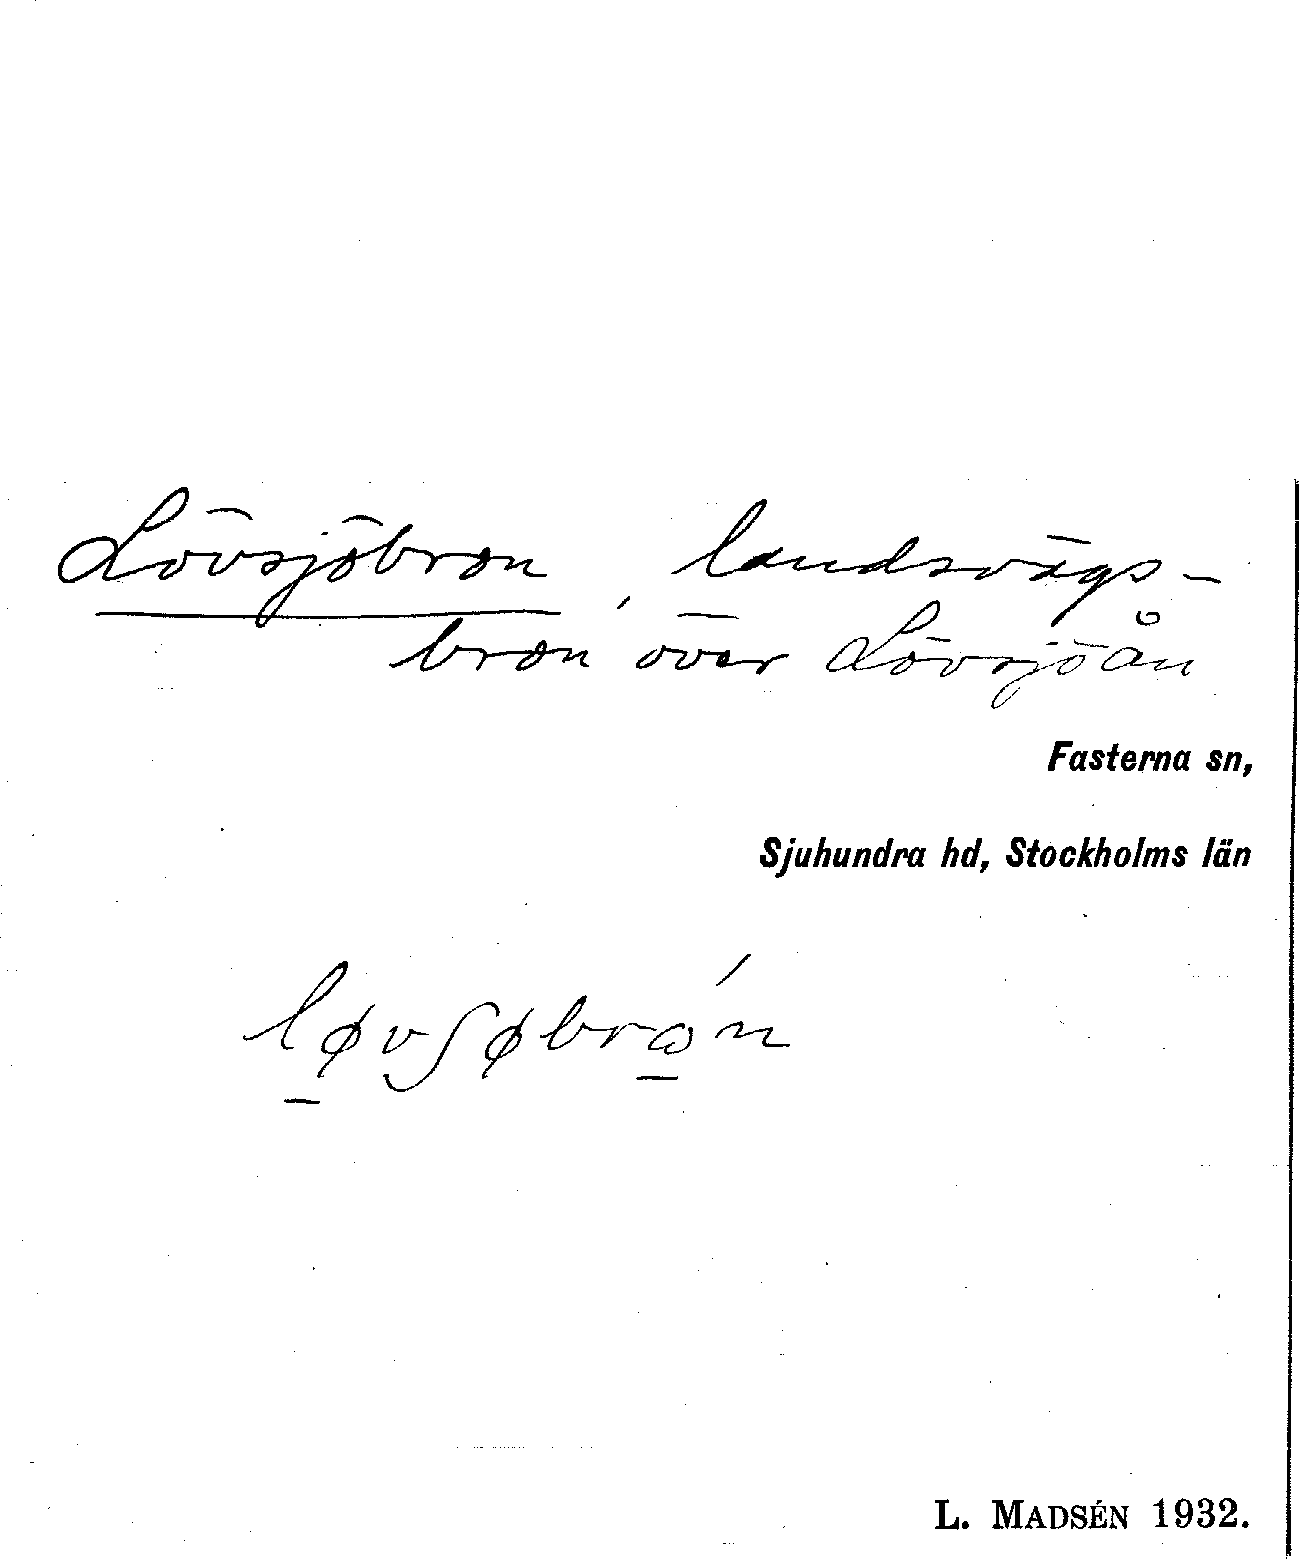 Lövsjöbron, landsvägs-
bron över Lövsjöån
Fasterna sn,
Sjuhundra hd, Stockholms län
L. MADSÉN 1932.